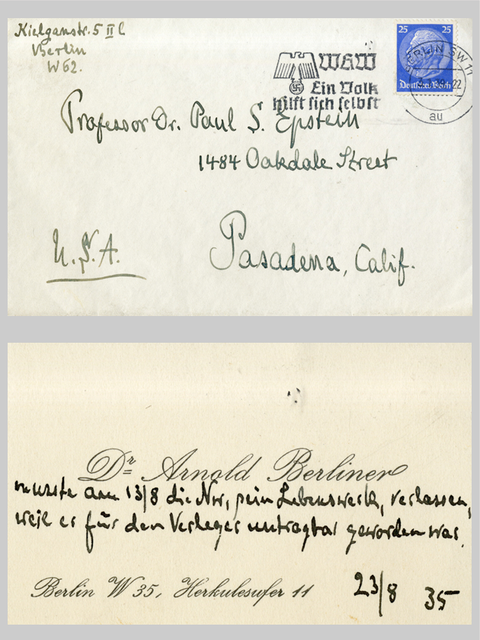 Kielganstr. 5 II l
Berlin
W 62.
WHW
Ein Volk
hilft sich selbst
25 25
Deutsches Reich
BERLIN SW 11
22
au
Professor Dr. Paul S. Epstein
1484 Oakdale Street
Pasadena, Calif.
U.S.A.
Dr Arnold Berliner
musste am 13/8 die Nw, sein Lebenswerk, verlassen,
weil er für den Verleger untragbar geworden war.
Berlin W 35, Herkulesufer 11
23/8 35